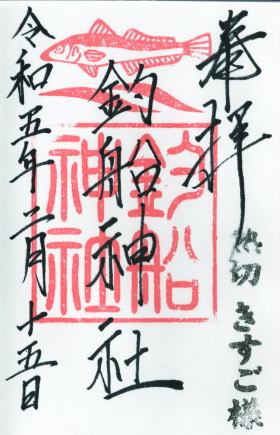 奉拝
切きすご様
釣船神社
釣船
神社
令和五年二月十五日